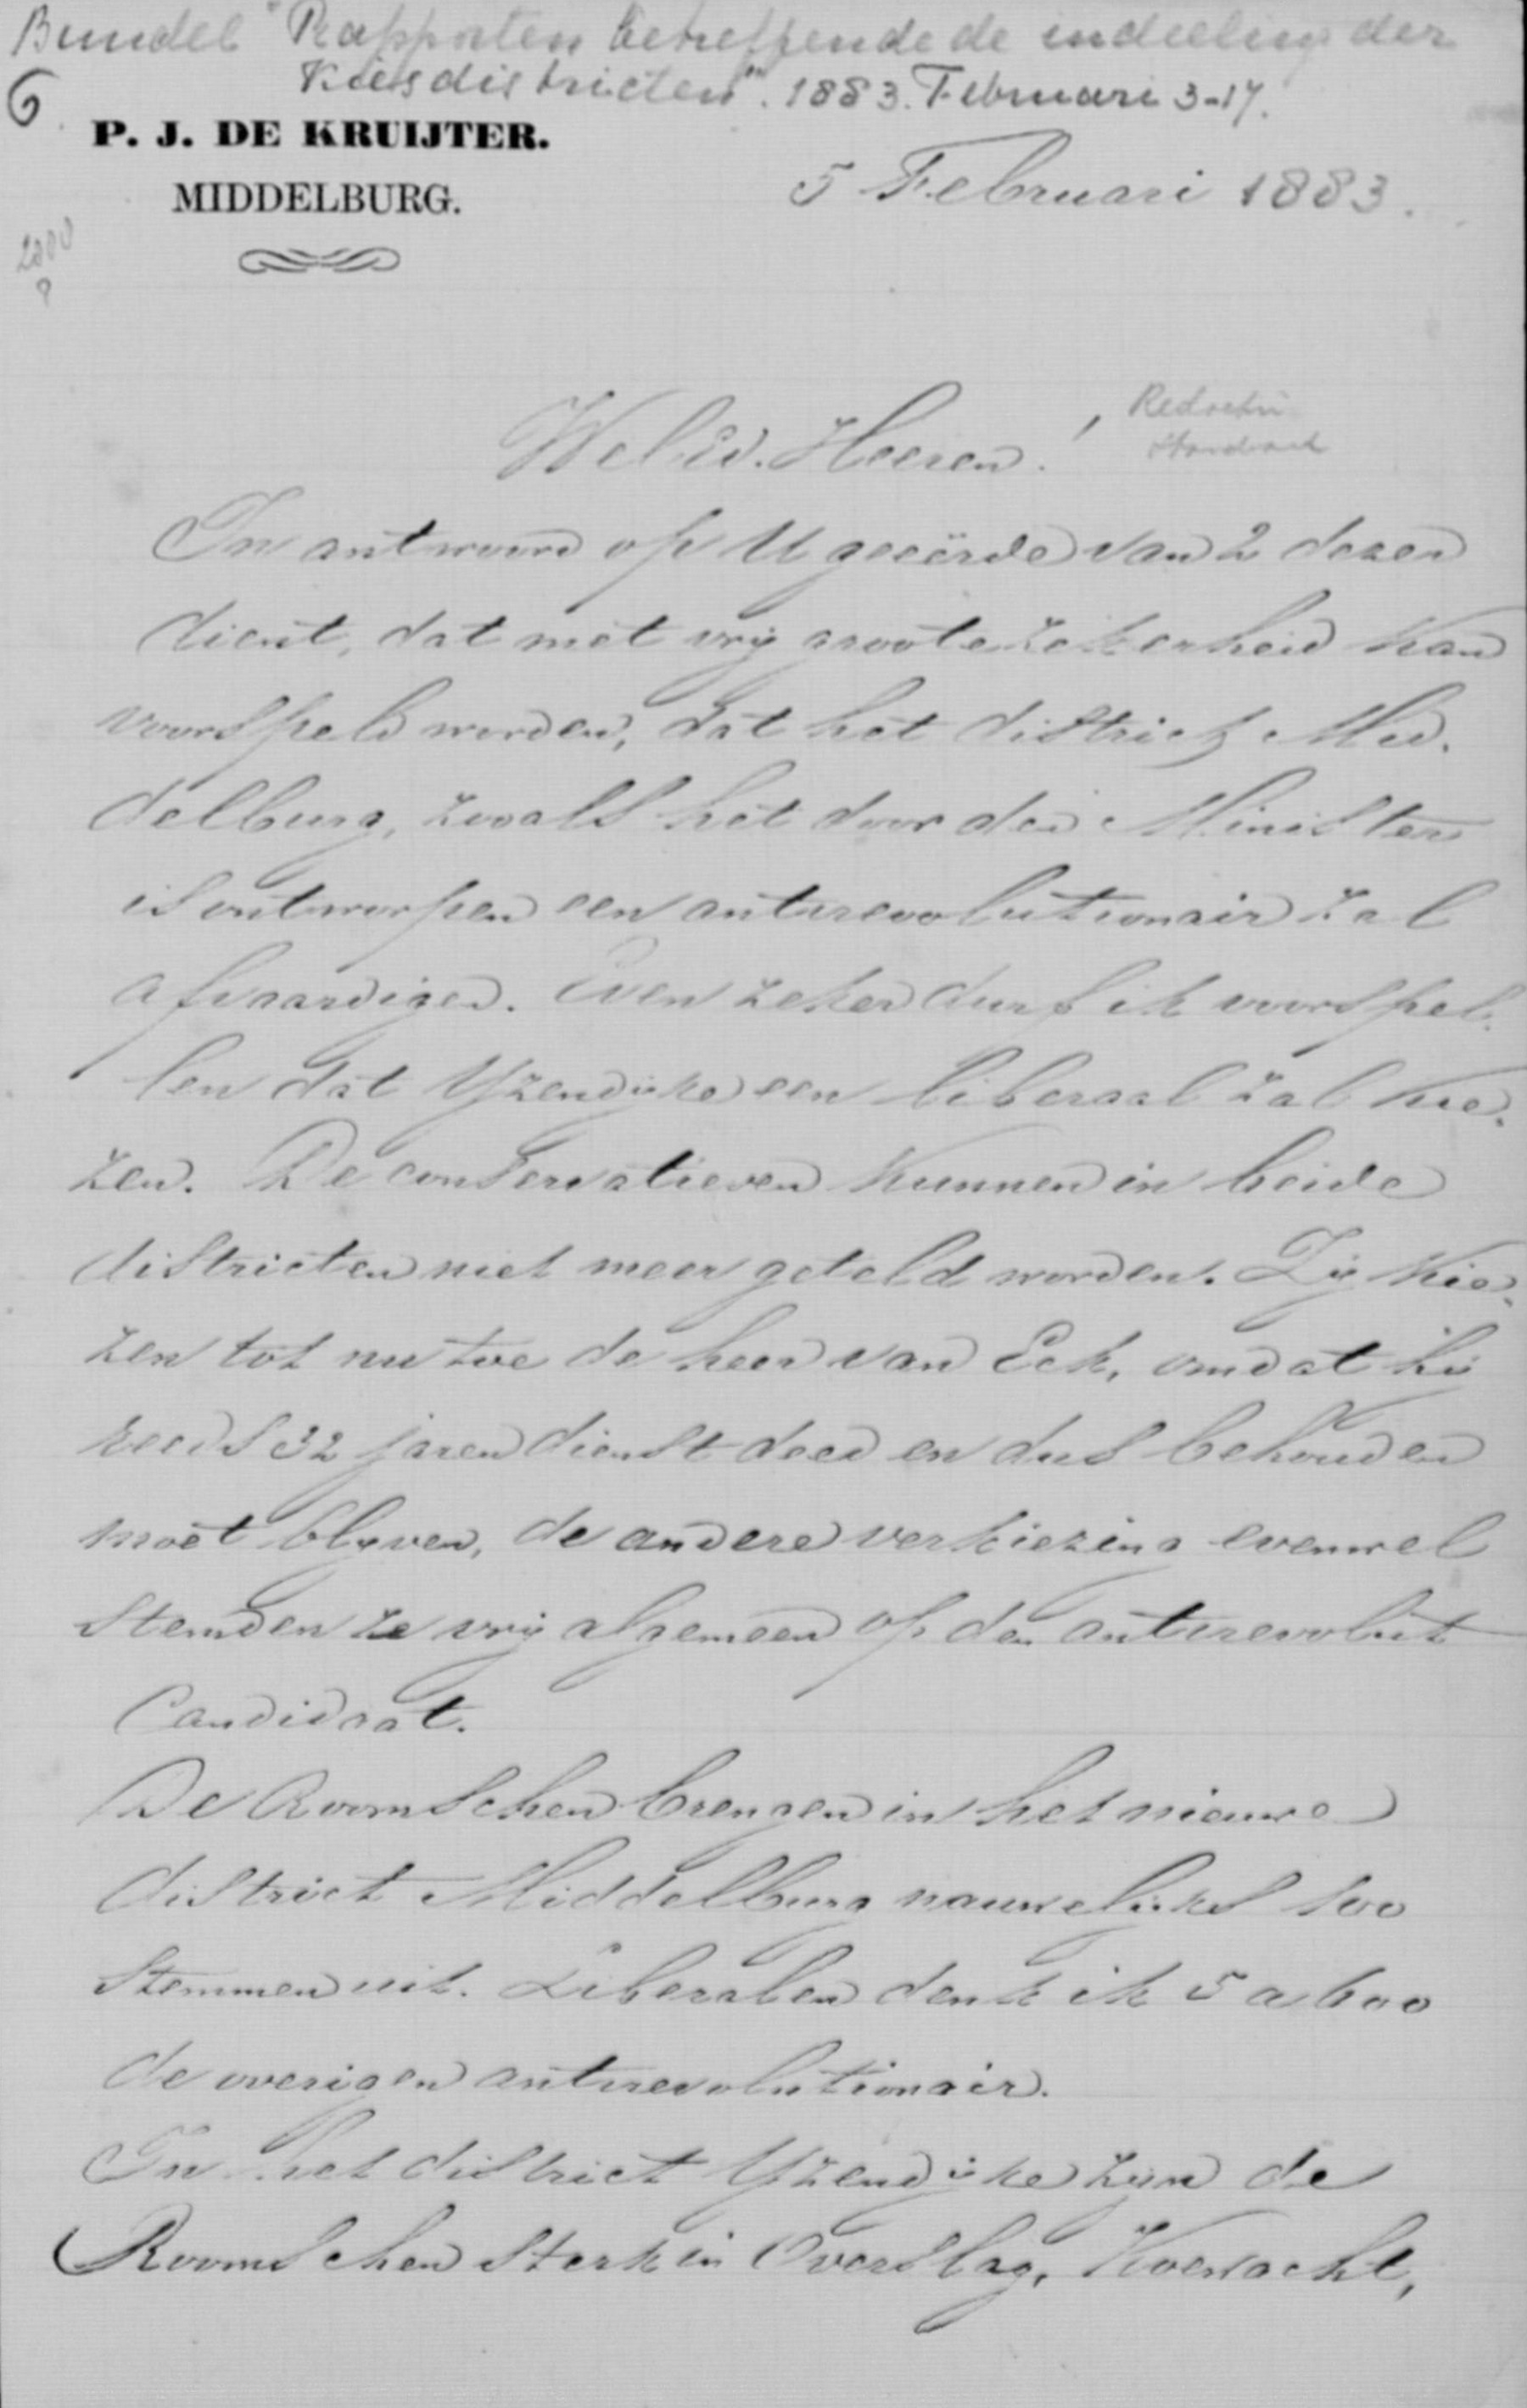 Bundel "Rapporten betreffende de indeeling der
Kiesdistricten". 1883. Februari 3-17.
6
P. J. DE KRUIJTER.
MIDDELBURG.
5 Februari 1883.
WelEd. Heeren!
Redactie
Standaard
In antwoord op U geëerde van 2 dezer
dient, dat met vrij groote zekerheid kan
voorspeld worden, dat het district Mid.
delburg, zooals het door den Minister
is ontworpen een antirevolutionair zal
afvaardigen. Even zeker durf ik voorspel.
len dat Yzendijke een liberaal zal kie.
zen. De conservatieven kunnen in beide
districten niet meer geteld worden. Zij kie.
zen tot nu toe de heer van Eck, omdat hij
reeds 32 jaren dienst deed en dus behouden
moet blyven, de andere verkiezing evenwel
stemden ze vrij algemeen op den antirevolut
Candidaat.
De Roomschen brengen in het nieuwe
district Middelburg nauwelijks 100
stemmen uit. Liberalen denk ik 5 a 600
de overigen antirevolutionair.
In het district Yzendijke zijn de
Roomschen sterk in Overslag, Koewacht,